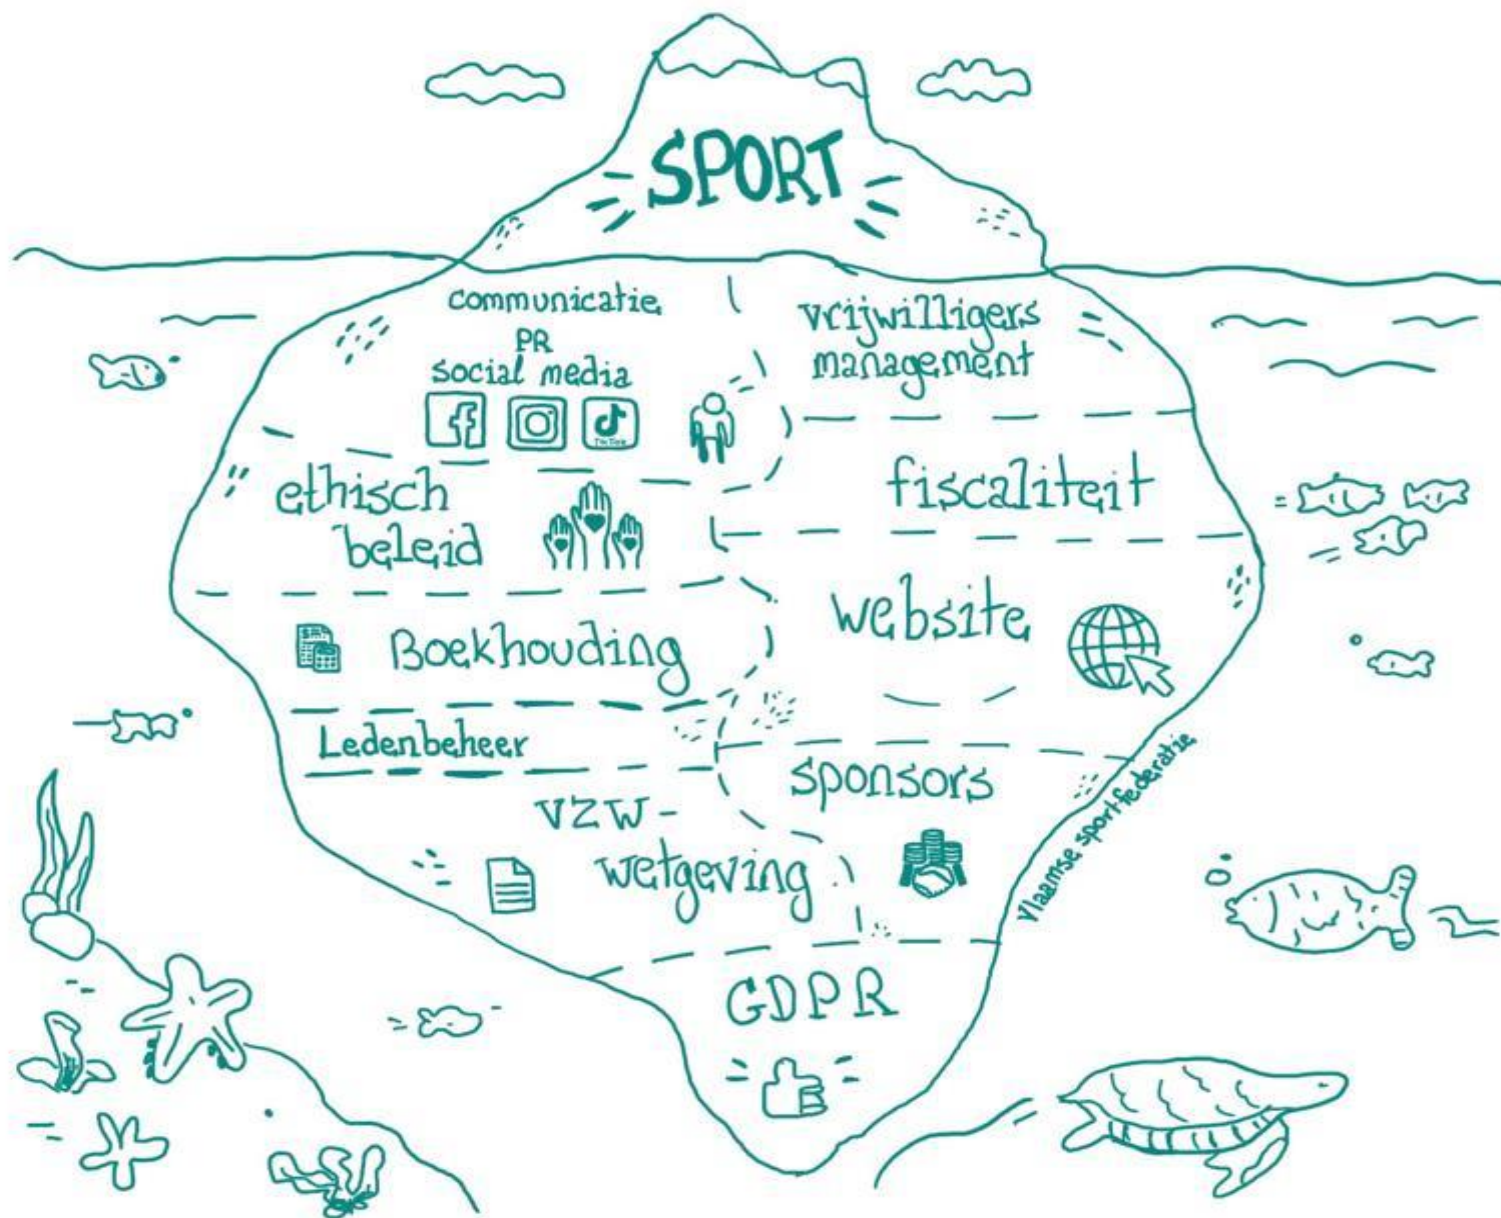 SPORT
communicatie
PR
social media
TikTok
vrijwilligers
management
ethisch
beleid
fiscaliteit
Boekhouding
website
Ledenbeheer
sponsors
VZW-
wetgeving
Vlaamse sportfederatie
GDPR